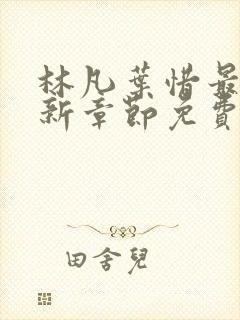 林凡葉惜最
新章節免費
田舍兒